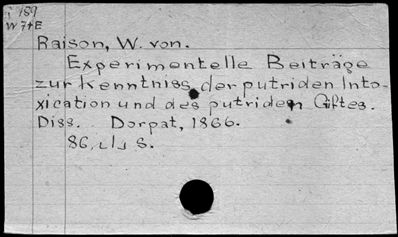 i 159
W7+E
Raison, W. von.
Experimentelle Beiträge
zur Kenntniss der putriden Into-
xication und des putriden Giftes.
Diss. Dorpat, 1866.
86, S.